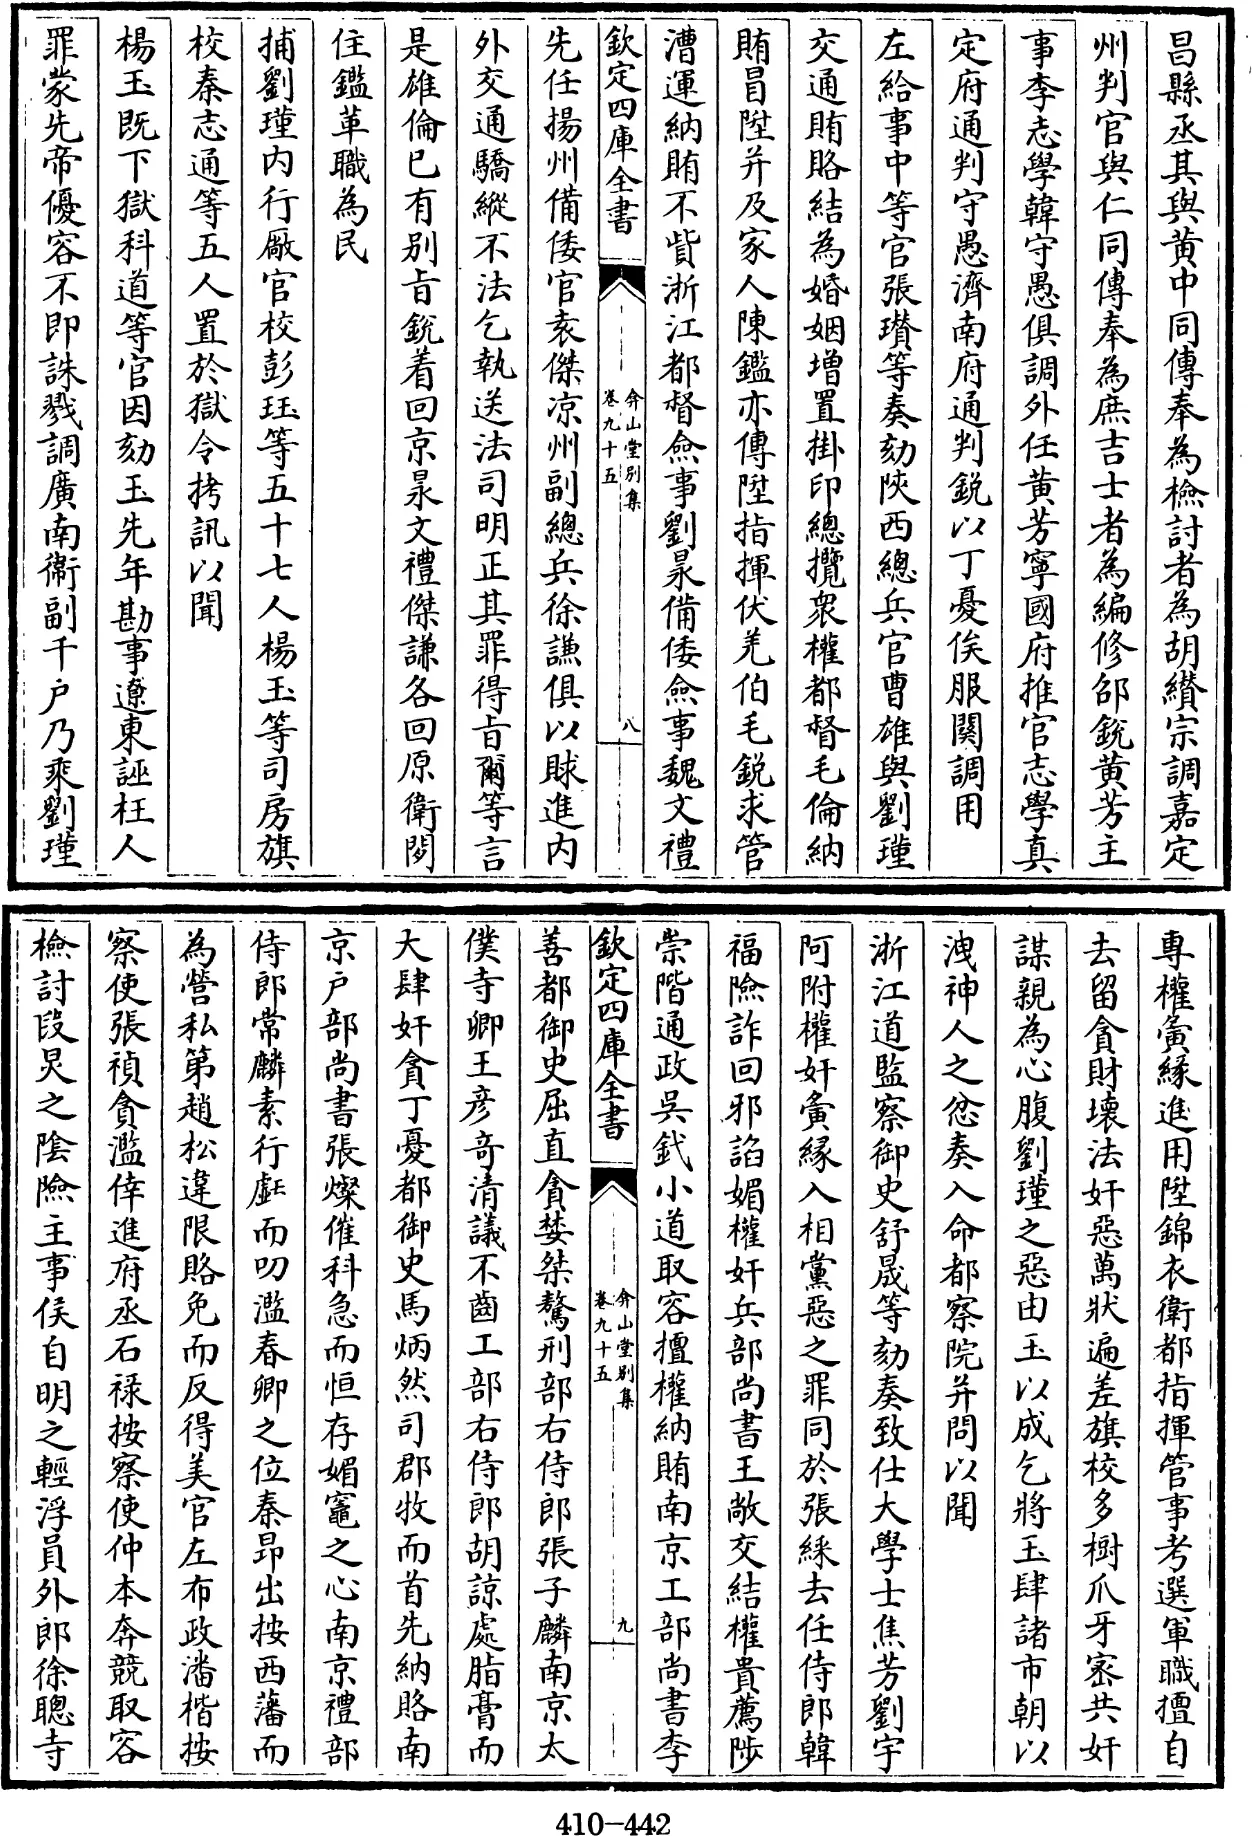 昌縣丞其與黄中同傳奉為檢討者為胡纘宗調嘉定
州判官與仁同傳奉為庶吉士者為編修邵鋭黄芳主
事李志學韓守愚俱調外任黄芳寧國府推官志學真
定府通判守愚濟南府通判鋭以丁憂俟服闋調用
左給事中等官張瓚等奏劾陜西總兵官曹雄與劉瑾
交通賄賂結為婚姻增置掛印總攬衆權都督毛倫納
賄昌陞并及家人陳鑑亦傳陞指揮伏羌伯毛鋭求管
漕運納賄不貲浙江都督僉事劉泉備倭僉事魏文禮
欽定四庫全書
弇山堂别集
卷九十五
八
先任揚州備倭官袁傑凉州副總兵徐謙俱以賕進内
外交通驕縱不法乞執送法司明正其罪得㫖爾等言
是雄倫已有别㫖鋭着回京泉文禮傑謙各回原衛閒
住鑑革職為民
捕劉瑾内行厰官校彭玨等五十七人楊玉等司房旗
校秦志通等五人置於獄令拷訊以聞
楊玉既下獄科道等官因劾玉先年勘事遼東誣枉人
罪蒙先帝優容不即誅戮調廣南衞副千户乃乘劉瑾
專權夤緣進用陞錦衣衛都指揮管事考選軍職擅自
去留貪財壞法奸惡萬狀遍差旗校多樹爪牙宻共奸
謀親為心腹劉瑾之惡由玉以成乞將玉肆諸市朝以
洩神人之忿奏入命都察院并問以聞
浙江道監察御史舒晟等劾奏致仕大學士焦芳劉宇
阿附權奸夤緣入相黨惡之罪同於張綵去任侍郎韓
福險詐回邪諂媚權奸兵部尚書王敞交結權貴薦陟
崇階通政吳釴小道取容擅權納賄南京工部尚書李
欽定四庫全書
弇山堂别集
卷九十五
九
善都御史屈直貪婪桀驁刑部右侍郎張子麟南京太
僕寺卿王彦竒清議不齒工部右侍郎胡諒處脂膏而
大肆奸貪丁憂都御史馬炳然司郡牧而首先納賂南
京户部尚書張燦催科急而恒存媚竈之心南京禮部
侍郎常麟素行虧而叨濫春卿之位秦昂出按西藩而
為營私第趙松違限賂免而反得美官左布政潘楷按
察使張禎貪濫倖進府丞石禄按察使仲本奔競取容
檢討段炅之陰險主事侯自明之輕浮員外郎徐聰寺
410-442